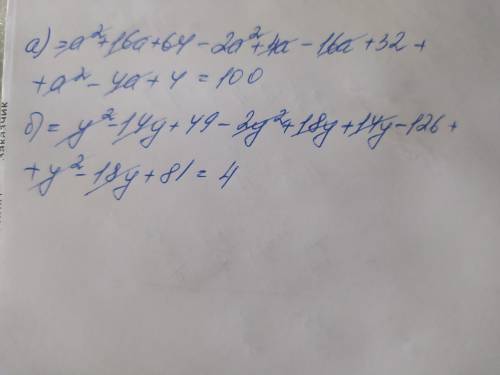 а) = a² + 16a + 64 - 2a² + 4a - 16a + 32 +
+ a² - 4a + 4 = 100
б) = y² - 14y + 49 - 2y² + 18y + 14y - 126 +
+ y² - 18y + 81 = 4
Заказчик